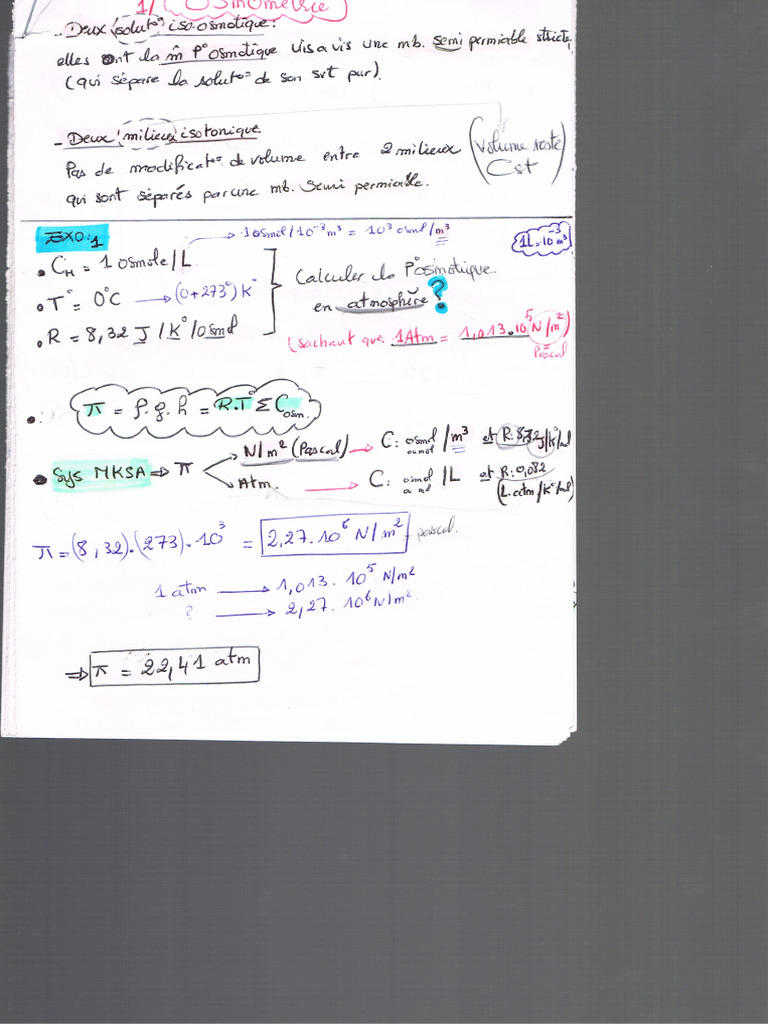 1/ Osmométrie
- Deux solut° iso-osmotique:
elles ont la m̂ P° osmotique vis a vis une mb. semi permiable stricte,
(qui sépare la solut° de son svt pur).
- Deux milieux isotonique.
Pas de modificat° de volume entre 2 milieux (Volume reste Cst)
qui sont séparés par une mb. semi permiable.
EXO:1
→ 1 osmol/10⁻³m³ = 10³ osml/m³
1L=10⁻³m³
• C_M = 1 osmole/L
• T° = 0°C → (0+273°)K°
• R = 8,32 J/K°/osmol
Calculer la P°osmotique
en atmosphère ?
(sachant que 1Atm = 1,013.10⁵ N/m²)
Pascal
π = ρ.g.h = R.T° Σ Cosm.
• Sys MKSA ⇒ π
N/m² (Pascal) → C: osmol ou mol /m³ et R: 8,32 J/K°/mol
Atm. → C: osmol ou mol /L et R: 0,082 (L.atm/K°/mol)
π = (8,32).(273).10³ = 2,27.10⁶ N/m² = pascal.
1 atm → 1,013.10⁵ N/m²
? → 2,27.10⁶ N/m²
⇒ π = 22,41 atm